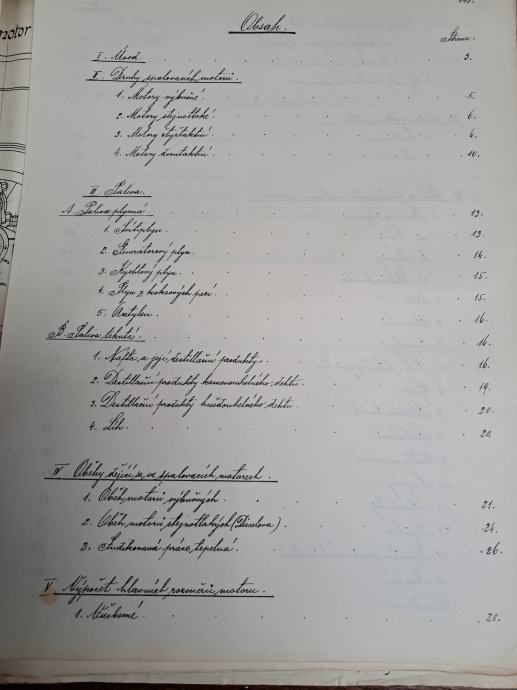 motor
Obsah.
Strana.
I. Úvod. 3.
II. Druhy spalovacích motorů.
1. Motory výbušné. 5.
2. Motory stejnotlaké. 6.
3. Motory čtyřtaktní. 6.
4. Motory dvoutaktní. 10.
III. Paliva.
A. Paliva plynná. 13.
1. Svítiplyn. 13.
2. Generatorový plyn. 14.
3. Kychtový plyn. 15.
4. Plyn z koksových pecí. 15.
5. Acetylen. 16.
B. Paliva tekutá. 16.
1. Nafta a její destillační produkty. 16.
2. Destillační produkty kamenouhelného dehtu. 19.
3. Destillační produkty hnědouhelného dehtu. 20.
4. Líh. 20.
IV Oběhy dějící se ve spalovacích motorech.
1. Oběh motorů výbušných. 21.
2. Oběh motorů stejnotlakých (Dieselova). 24.
3. Indikovaná práce tepelná. 26.
V Výpočet hlavních rozměrů motoru.
1. Všeobecně. 28.